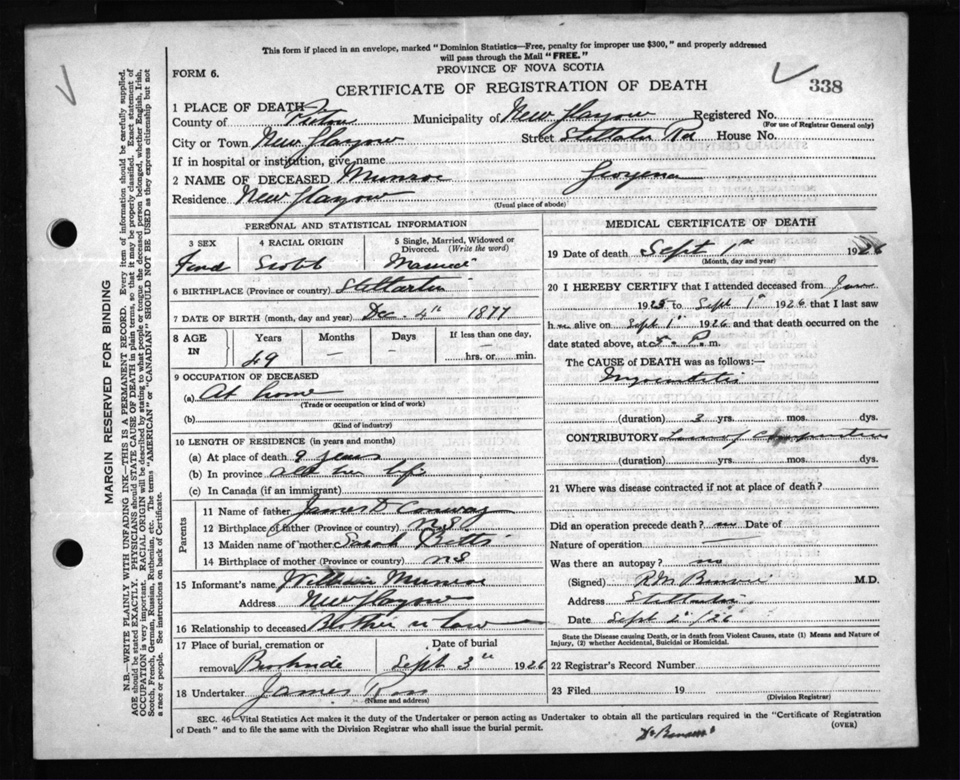 This form if placed in an envelope, marked "Dominion Statistics—Free, penalty for improper use $300," and properly addressed
will pass through the Mail "FREE."
PROVINCE OF NOVA SCOTIA
FORM 6.
CERTIFICATE OF REGISTRATION OF DEATH
338
1 PLACE OF DEATH
County of Pictou Municipality of New Glasgow Registered No.
(For use of Registrar General only)
City or Town New Glasgow Street Stellarton Rd House No.
If in hospital or institution, give name
2 NAME OF DECEASED Munroe Georgena
Residence New Glasgow
(Usual place of abode)
PERSONAL AND STATISTICAL INFORMATION
3 SEX 4 RACIAL ORIGIN 5 Single, Married, Widowed or Divorced. (Write the word)
Scotch Married
6 BIRTHPLACE (Province or country) Stellarton
7 DATE OF BIRTH (month, day and year) Dec. 4th 1877
8 AGE IN Years Months Days If less than one day,
49 — — hrs. or min.
9 OCCUPATION OF DECEASED
(a) At home
(Trade or occupation or kind of work)
(b)
(Kind of industry)
10 LENGTH OF RESIDENCE (in years and months)
(a) At place of death 9 years
(b) In province all her life
(c) In Canada (if an immigrant)
Parents
11 Name of father James D Conway
12 Birthplace of father (Province or country) N S
13 Maiden name of mother Sarah Betts
14 Birthplace of mother (Province or country) N S
15 Informant's name William Munroe
Address New Glasgow
16 Relationship to deceased Brother in law
17 Place of burial, cremation or Date of burial
removal Sept 3rd 1926
18 Undertaker James Ross
(Name and address)
MEDICAL CERTIFICATE OF DEATH
19 Date of death Sept 1st 1926
(Month, day and year)
20 I HEREBY CERTIFY that I attended deceased from June
1925 to Sept 1st 1926 that I last saw
her alive on Sept 1st 1926 and that death occurred on
date stated above, at P. m.
The CAUSE of DEATH was as follows:
Myocarditis
(duration) 3 yrs. mos. dys.
CONTRIBUTORY
(duration) yrs. mos. dys.
21 Where was disease contracted if not at place of death?
Did an operation precede death? no Date of
Nature of operation —
Was there an autopsy? no
(Signed) M.D.
Address Stellarton
Date Sept 2/26
State the Disease causing Death, or in death from Violent Causes, state (1) Means and Nature of
Injury, (2) whether Accidental, Suicidal or Homicidal.
22 Registrar's Record Number
23 Filed 19
(Division Registrar)
SEC. 46—Vital Statistics Act makes it the duty of the Undertaker or person acting as Undertaker to obtain all the particulars required in the "Certificate of Registration
of Death" and to file the same with the Division Registrar who shall issue the burial permit.
(OVER)
MARGIN RESERVED FOR BINDING
N.B.—WRITE PLAINLY, WITH UNFADING INK—THIS IS A PERMANENT RECORD. Every item of information should be carefully supplied.
AGE should be stated EXACTLY. PHYSICIANS should STATE CAUSE OF DEATH in plain terms, so that it may be properly classified. Exact statement of
OCCUPATION is very important. RACIAL ORIGIN will be described by stating to what people or tongue the deceased person belonged, whether English, Irish,
Scotch, French, German, Russian, Ruthenian, etc. The terms "AMERICAN" or "CANADIAN" SHOULD NOT BE USED as they express citizenship but not
a race or people. See instructions on back of Certificate.